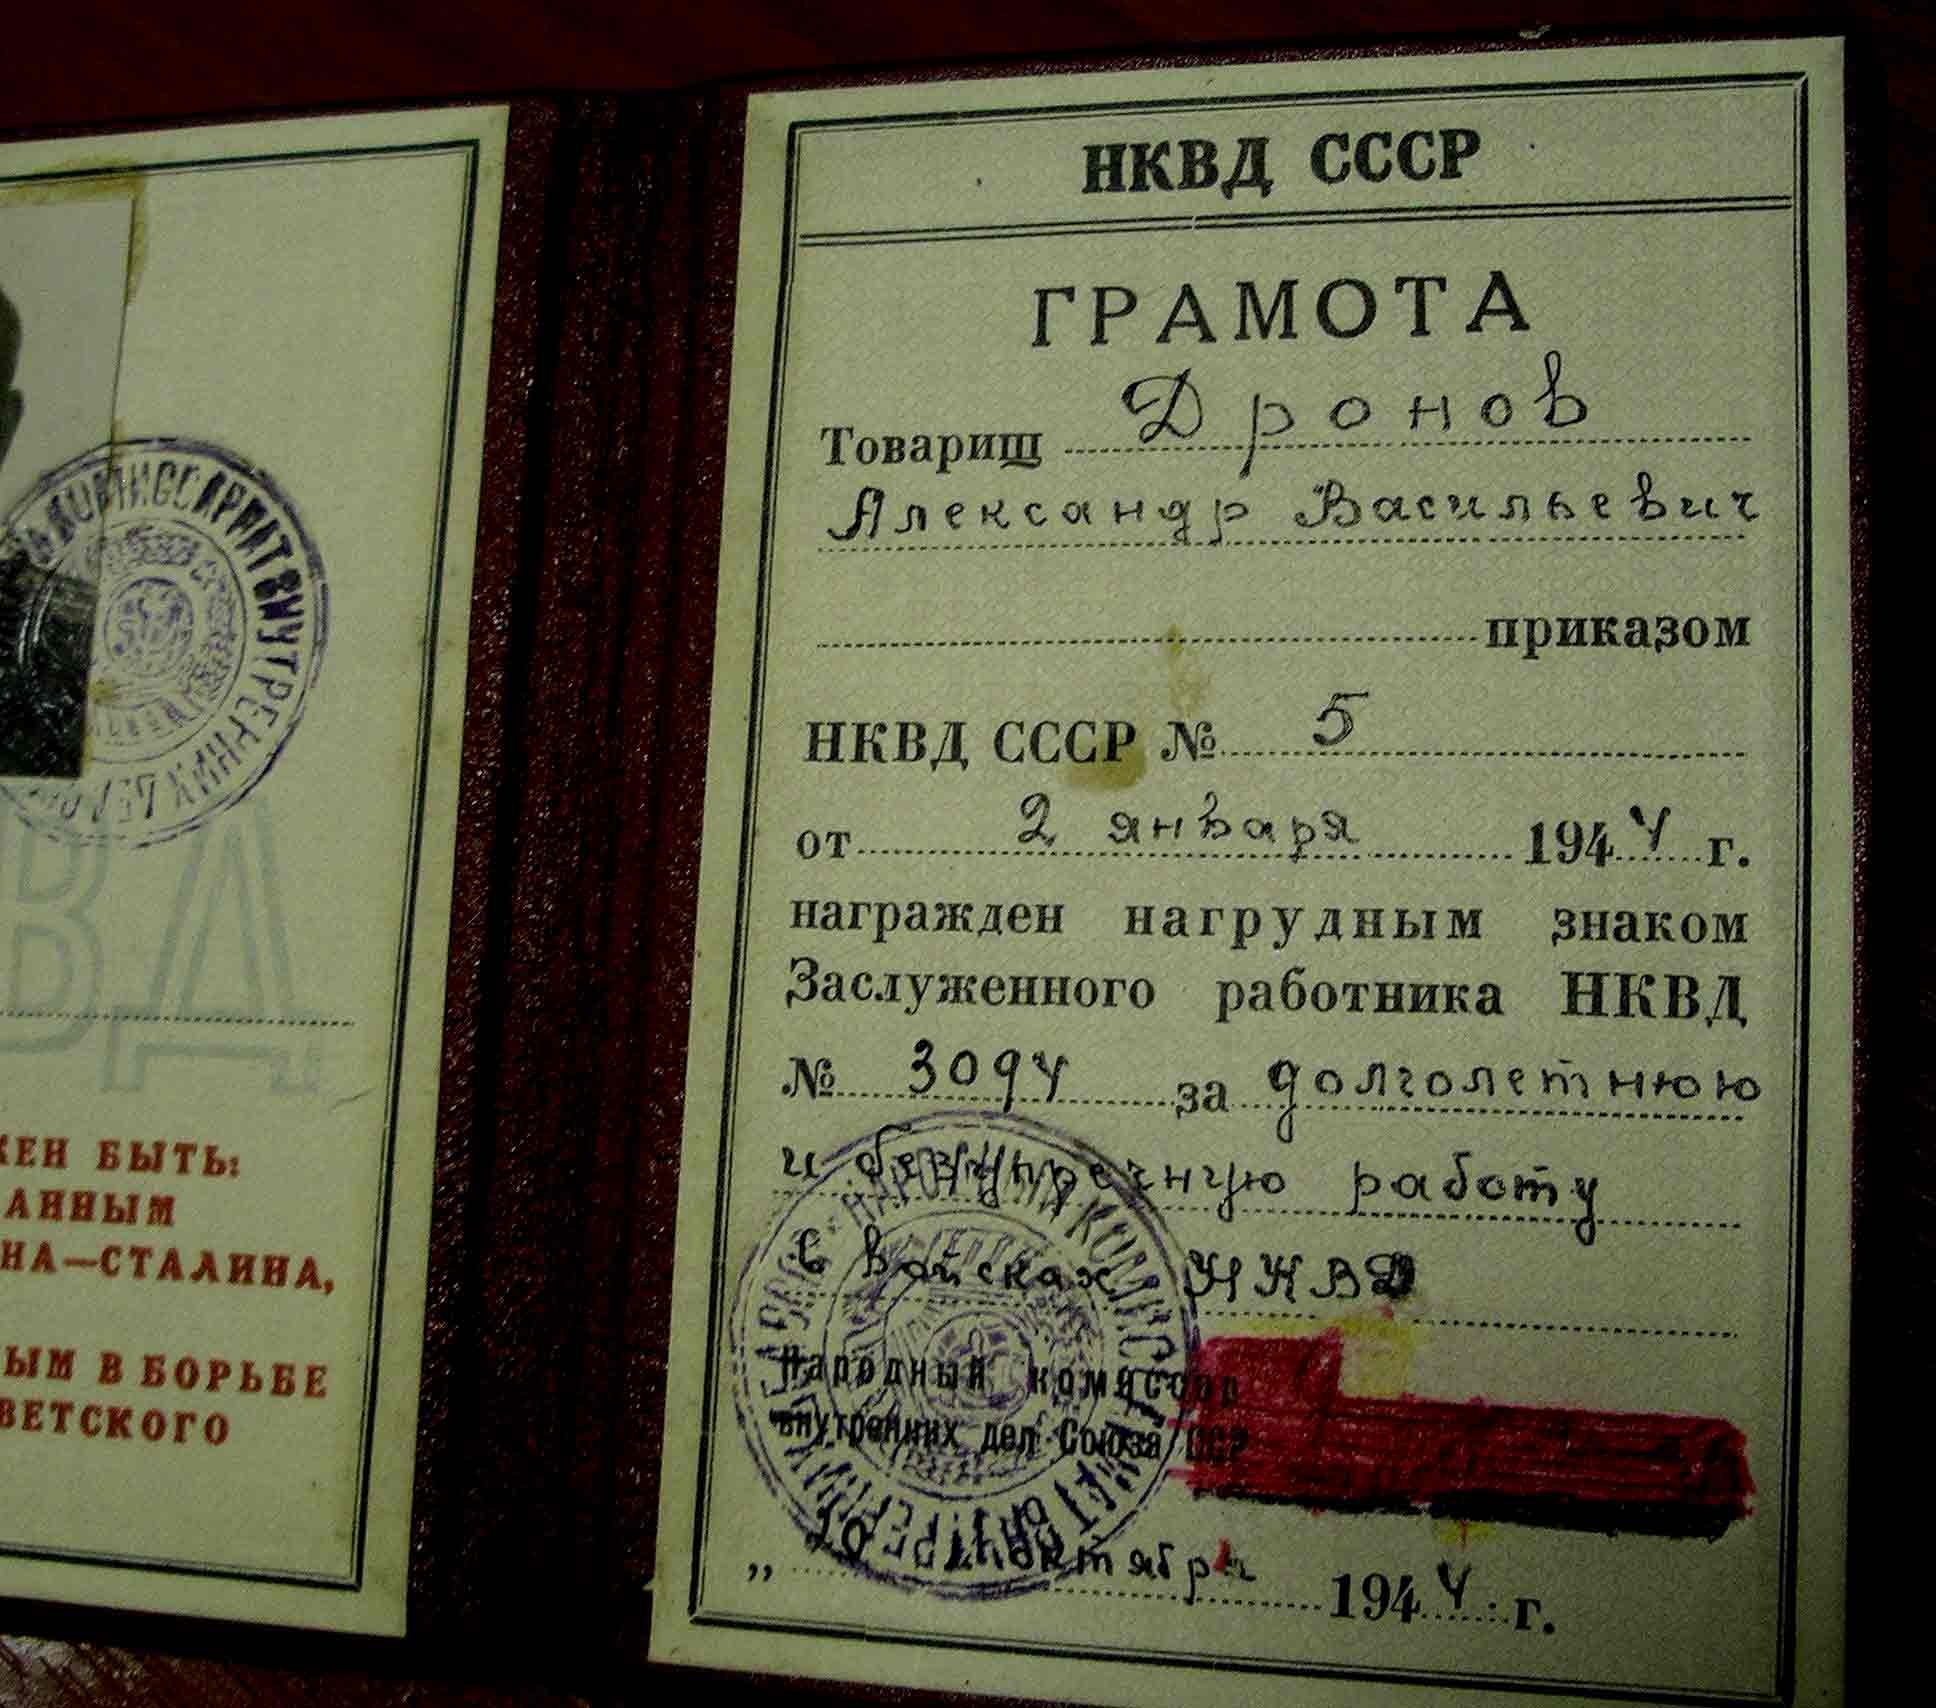 ВД
КЕН БЫТЬ:
АННЫМ
НА—СТАЛИНА,
ЫМ В БОРЬБЕ
ВЕТСКОГО
НКВД СССР
ГРАМОТА
Товарищ Дронов
Александр Васильевич
приказом
НКВД СССР № 5
от 2 января 1944 г.
награжден нагрудным знаком
Заслуженного работника НКВД
№ 3094 за долголетнюю
и безупречную работу
в войсках НКВД
Народный комиссар
внутренних дел Союза ССР
„ 10 октября 1944 г.